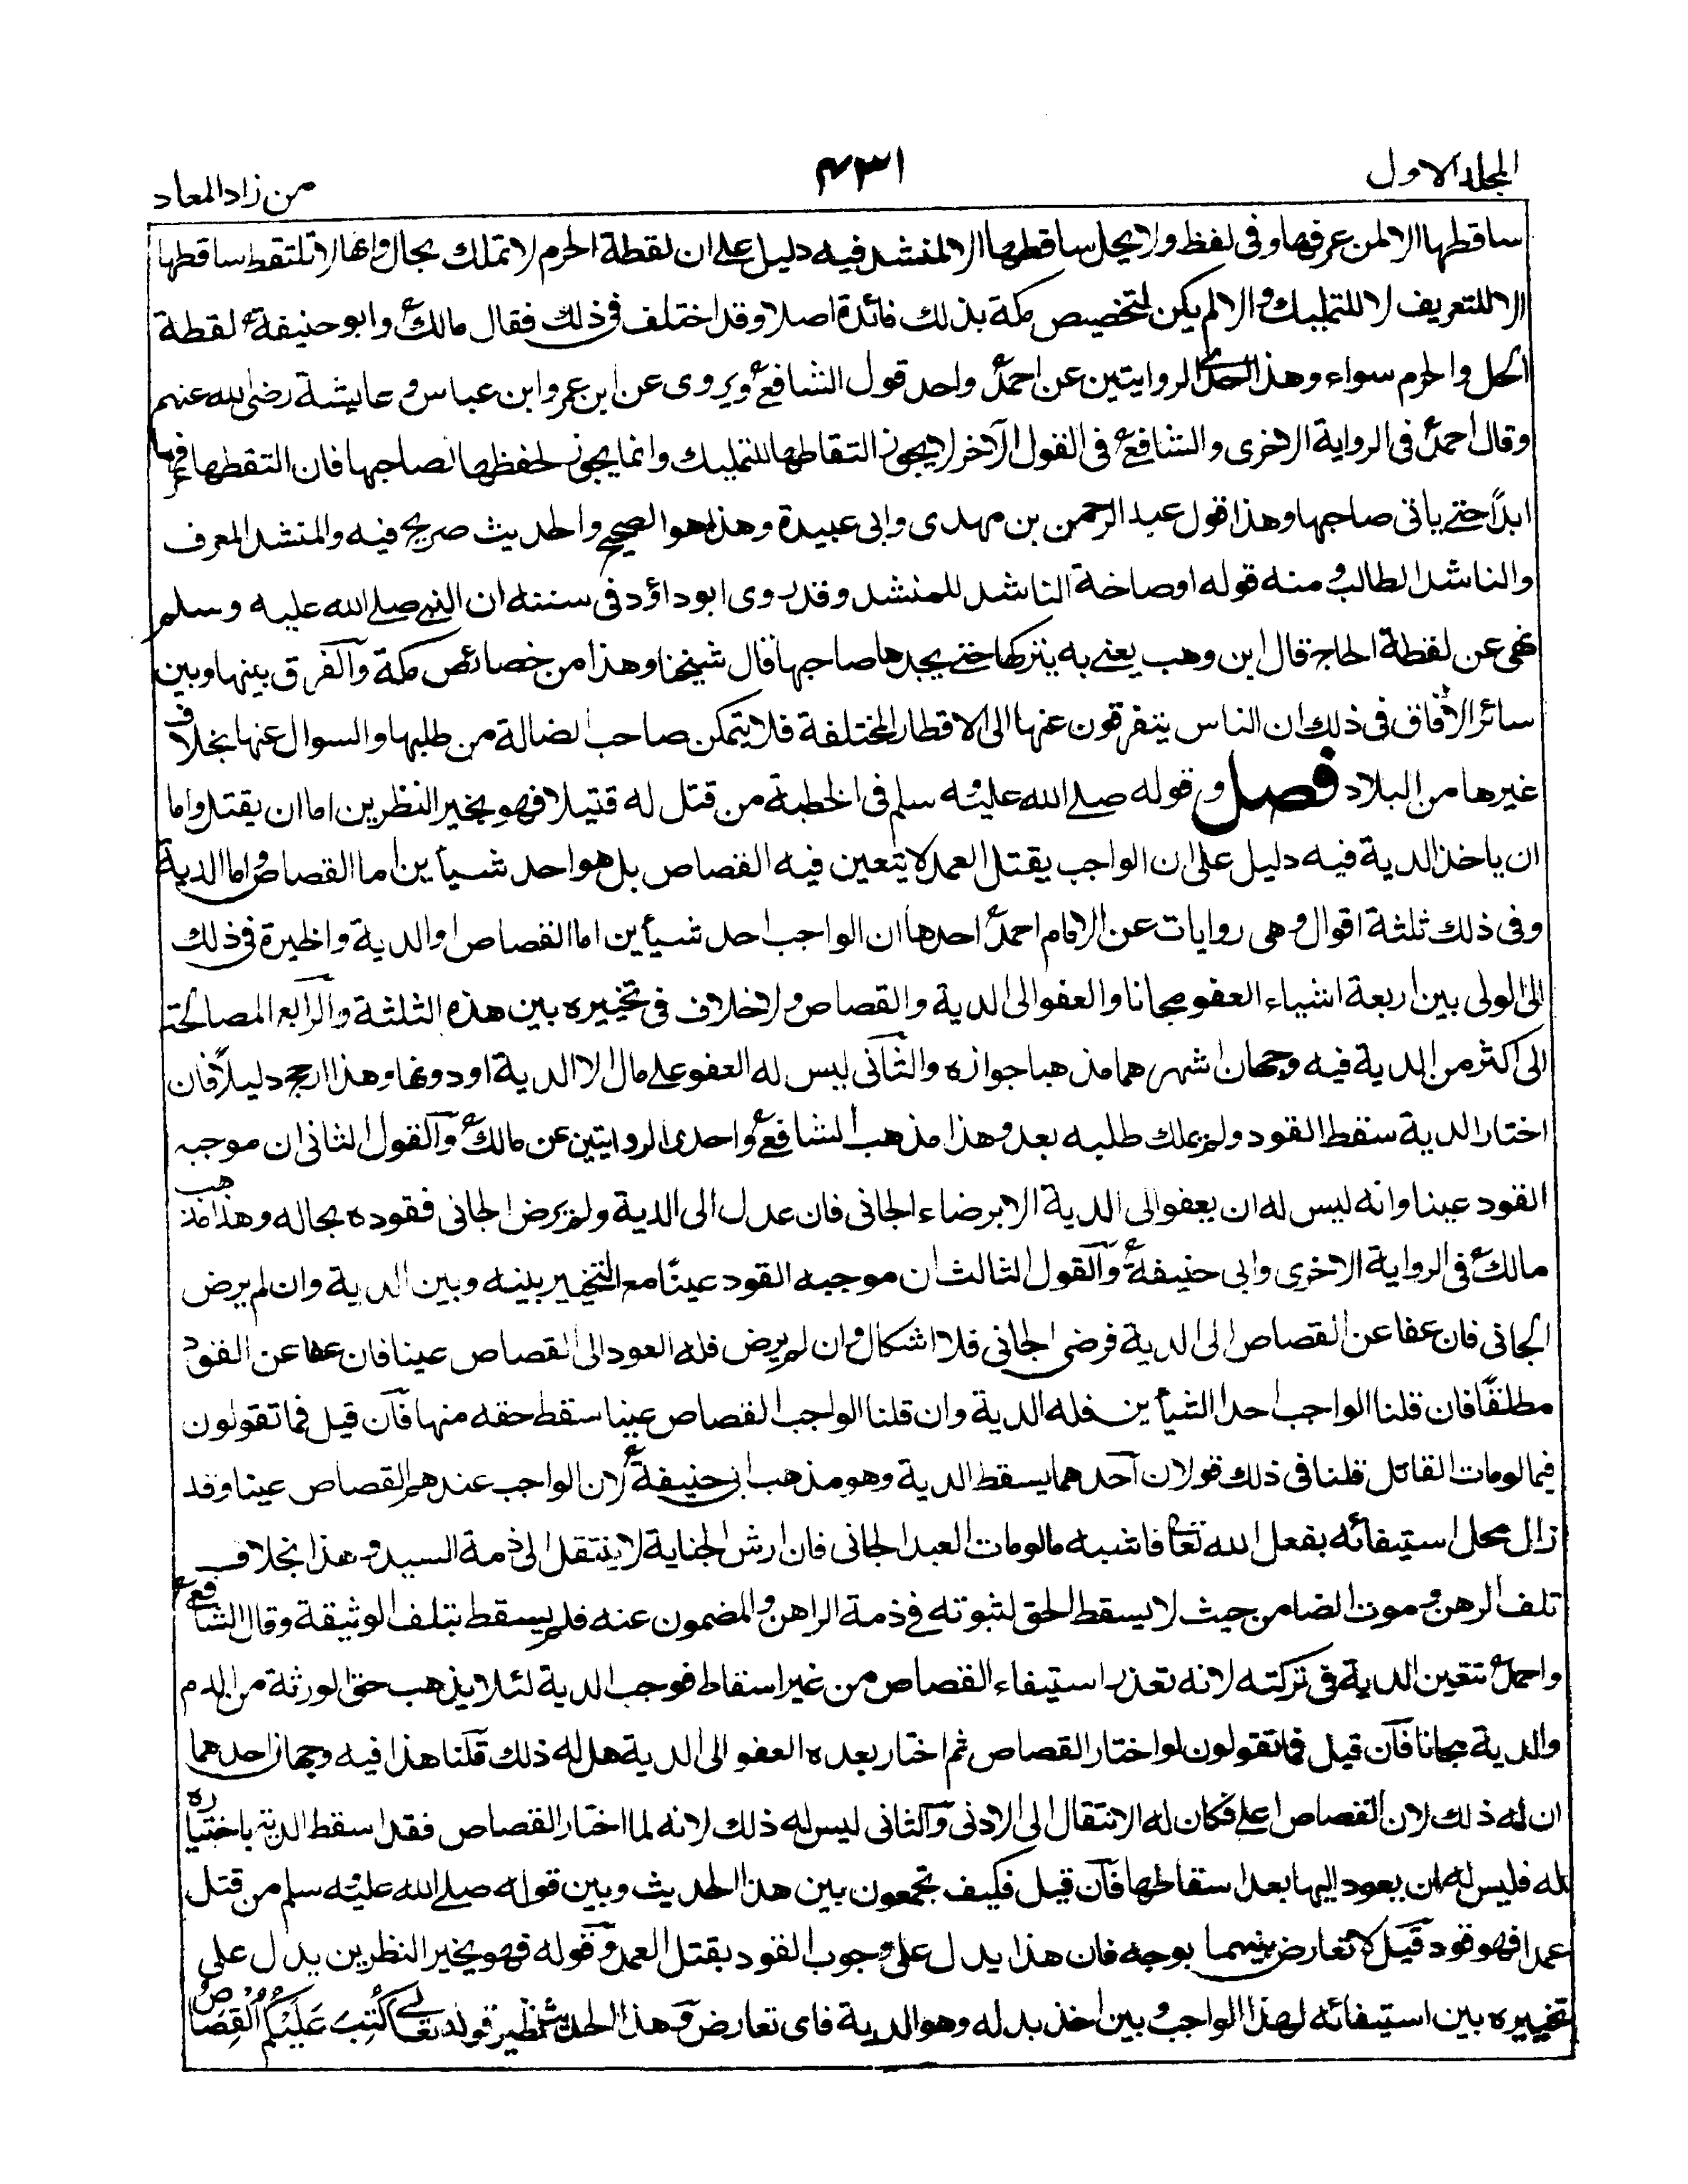 المجلد الاول
۴۳۱
من زاد المعاد
ساقطها الا لمن عرفها وفى لفظ ولا يحل ساقطها الا لمنشد فيه دليل على ان لقطة الحرم لا تملك بحال وانها لا تلتقط ساقطها
الا للتعريف لا للتمليك والا لم يكن لتخصيص مكة بذلك فائدة اصلا وقد اختلف فى ذلك فقال مالكؒ وابو حنيفةؒ لقطة
الحل والحرم سواء وهذا احدى الروايتين عن احمدؒ واحد قول الشافعىؒ ويروى عن ابن عمر وابن عباس وعايشة رضى الله عنهم
وقال احمدؒ فى الرواية الاخرى والشافعىؒ فى القول الآخر لا يجوز التقاطها للتمليك وانما يجوز لحفظها لصاحبها فان التقطها عرفها
ابدًا حتى ياتى صاحبها وهذا قول عبد الرحمن بن مهدى وابى عبيدة وهذا هو الصحيح والحديث صريح فيه والمنشد المعرف
والناشد الطالب ومنه قوله اوصاخة الناشد للمنشد وقد روى ابو داؤد فى سننه ان النبى صلى الله عليه وسلم
نهى عن لقطة الحاج قال ابن وهب يعنى به يتركها حتى يجدها صاحبها قال شيخنا وهذا من خصائص مكة والفرق بينها وبين
سائر الآفاق فى ذلك ان الناس يتفرقون عنها الى الاقطار المختلفة فلا يتمكن صاحب الضالة من طلبها والسوال عنها بخلاف
غيرها من البلاد فصل وقوله صلى الله عليه وسلم فى الخطبة من قتل له قتيلا فهو بخير النظرين اما ان يقتل واما
ان ياخذ الدية فيه دليل على ان الواجب يقتل العمد لا يتعين فيه القصاص بل هو احد شيأين اما القصاص واما الدية
وفى ذلك ثلثة اقوال وهى روايات عن الامام احمدؒ احدها ان الواجب احد شيأين اما القصاص او الدية والخيرة فى ذلك
الى الولى بين اربعة اشياء العفو مجانا والعفو الى الدية والقصاص ولا خلاف فى تخييره بين هذه الثلثة والرابع المصالحة
الى اكثر من الدية فيه وجهان اشهرهما مذهبا جوازه والثانى ليس له العفو على مال الا الدية او دونها وهذا ارجح دليلًا فان
اختار الدية سقط القود ولم يملك طلبه بعد وهذا مذهب الشافعىؒ واحدى الروايتين عن مالكؒ والقول الثانى ان موجبه
القود عينا وانه ليس له ان يعفو الى الدية الا برضاء الجانى فان عدل الى الدية ولم يرض الجانى فقوده بحاله وهذا مذهب
مالكؒ فى الرواية الاخرى وابى حنيفةؒ والقول الثالث ان موجبه القود عينًا مع التخيير بينه وبين الدية وان لم يرض
الجانى فان عفا عن القصاص الى الدية فرضى الجانى فلا اشكال وان لم يرض فله العود الى القصاص عينا فان عفا عن القود
مطلقًا فان قلنا الواجب احد الشيأين فله الدية وان قلنا الواجب القصاص عينا سقط حقه منها فان قيل فما تقولون
فيما لو مات القاتل قلنا فى ذلك قولان احدهما يسقط الدية وهو مذهب ابى حنيفةؒ لان الواجب عندهم القصاص عينا وقد
زال محل استيفائه بفعل الله تعا فاشبه مالو مات العبد الجانى فان ارش الجناية لا ينتقل الى ذمة السيد وهذا بخلاف
تلف الرهن وموت الضامن حيث لا يسقط الحق لثبوته فى ذمة الراهن والمضمون عنه فلم يسقط بتلف الوثيقة وقال الشافعىؒ
واحمدؒ تتعين الدية فى تركته لانه تعذر استيفاء القصاص من غير اسقاط فوجب الدية لئلا يذهب حق الورثة من الدم
والدية مجانا فان قيل فما تقولون لو اختار القصاص ثم اختار بعده العفو الى الدية هل له ذلك قلنا هذا فيه وجهان احدهما
ان له ذلك لان القصاص اعلى فكان له الانتقال الى الادنى والثانى ليس له ذلك لانه لما اختار القصاص فقد اسقط الدية باختياره
له فليس له ان يعود اليها بعد اسقاطها فان قيل فكيف تجمعون بين هذا الحديث وبين قوله صلى الله عليه وسلم من قتل
عمدا فهو قود قيل لا تعارض بينهما بوجه فان هذا يدل على وجوب القود بقتل العمد وقوله فهو بخير النظرين يدل على
تخييره بين استيفائه لهذا الواجب وبين اخذ بدله وهو الدية فاى تعارض وهذا الحديث نظير قوله تعالى كُتِبَ عَلَيْكُمُ الْقِصَاصُ